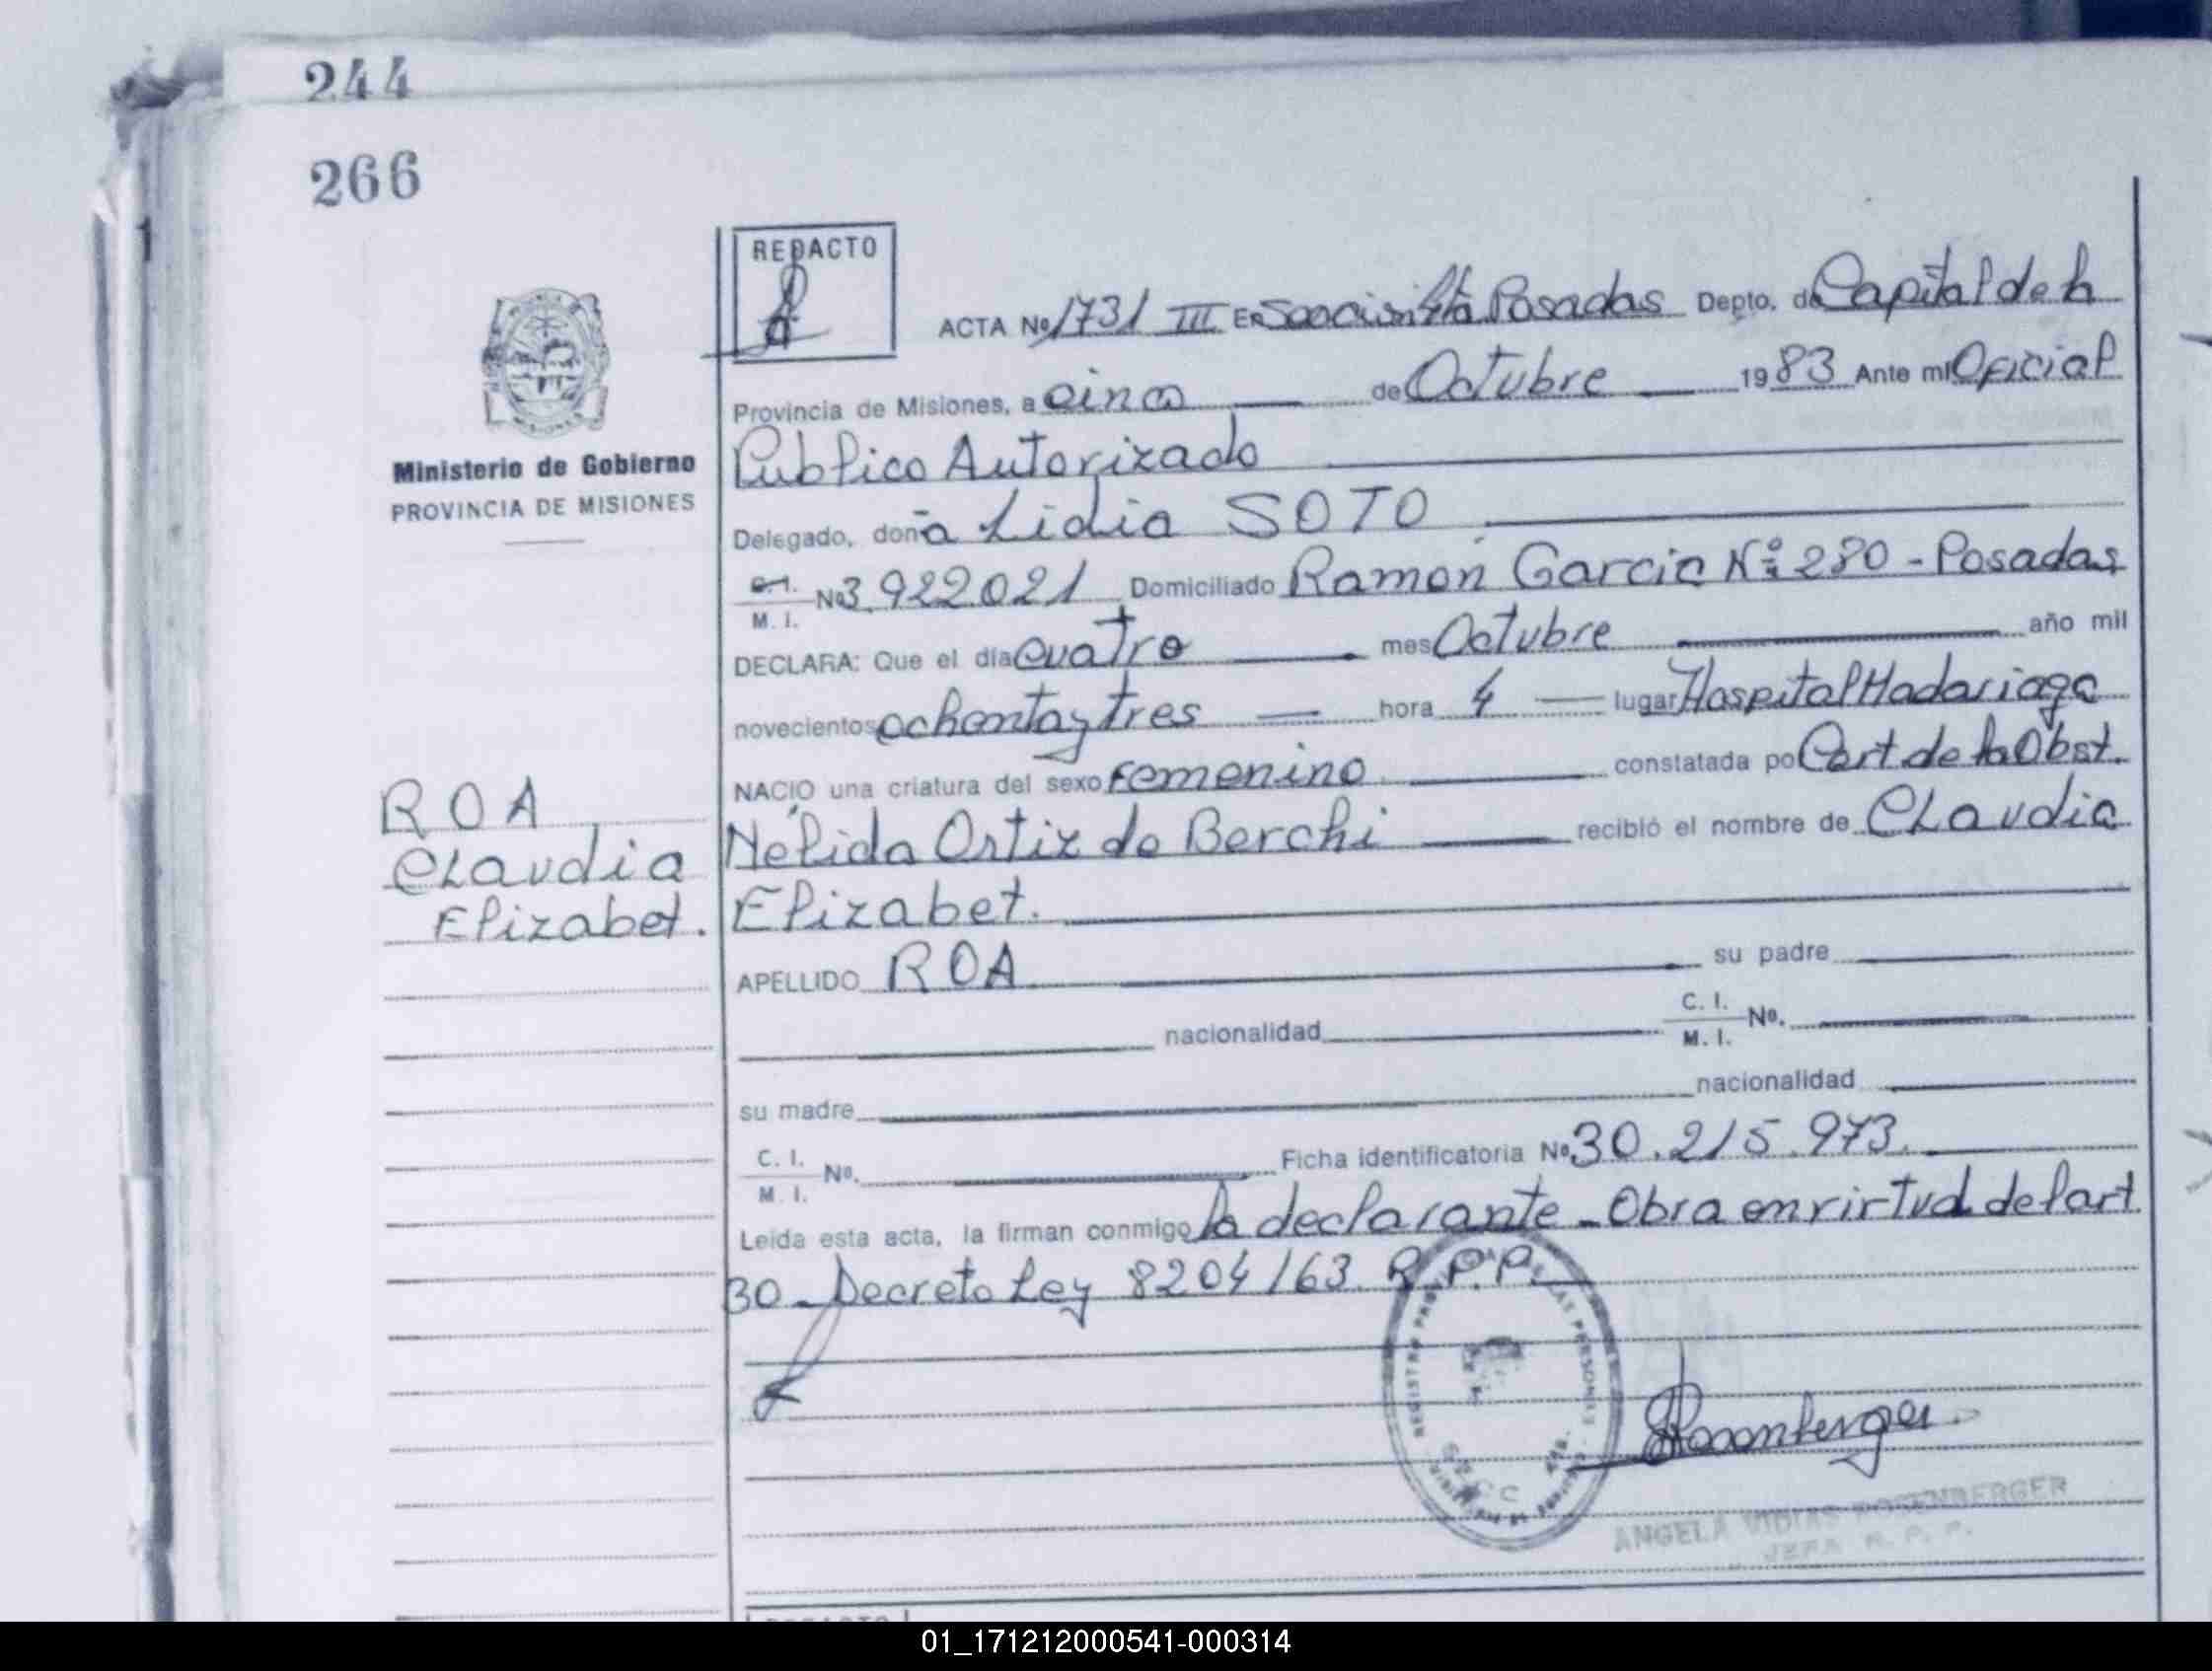 244
266
REDACTO
ACTA No 1731 III En Sección 6ta Posadas Depto. de Capital de la
Provincia de Misiones, a cinco de Octubre 1983 Ante mi Oficial
Publico Autorizado
Ministerio de Gobierno
PROVINCIA DE MISIONES
Delegado, doña Lidia SOTO
C.I. M. I. No 3.922.021 Domiciliado Ramón Garcia Nº 280 - Posadas
DECLARA: Que el día cuatro mes Octubre año mil
novecientos ochenta y tres hora 4 lugar Hospital Madariaga
NACIO una criatura del sexo Femenino constatada por Cert. de la Obst.
ROA
Claudia
Elizabet.
Nélida Ortiz de Berchi recibió el nombre de Claudia
Elizabet.
APELLIDO ROA su padre
nacionalidad C. I. M. I. No.
su madre nacionalidad
C. I. M. I. No. Ficha identificatoria No 30.215.973.
Leida esta acta, la firman conmigo la declarante - Obra en virtud del art.
30 - Decreto Ley 8204/63. R.P.P.
Rosenberger
ANGELA ROSENBERGER
JEFA R. P. P.
01_171212000541-000314